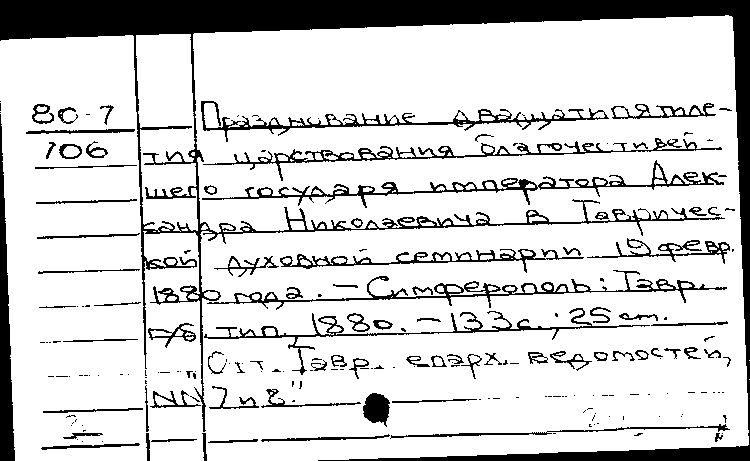 80-7 Празднование двадцатипятиле-
106 тия царствования благочестивей-
шего государя императора Алек-
сандра Николаевича в Тавричес-
кой духовной семинарии 19 февр.
1880 года. - Симферополь: Тавр.
губ. тип., 1880. - 133 с.; 25 см.
"Отт. Тавр. епарх. ведомостей,
NN 7 и 8."